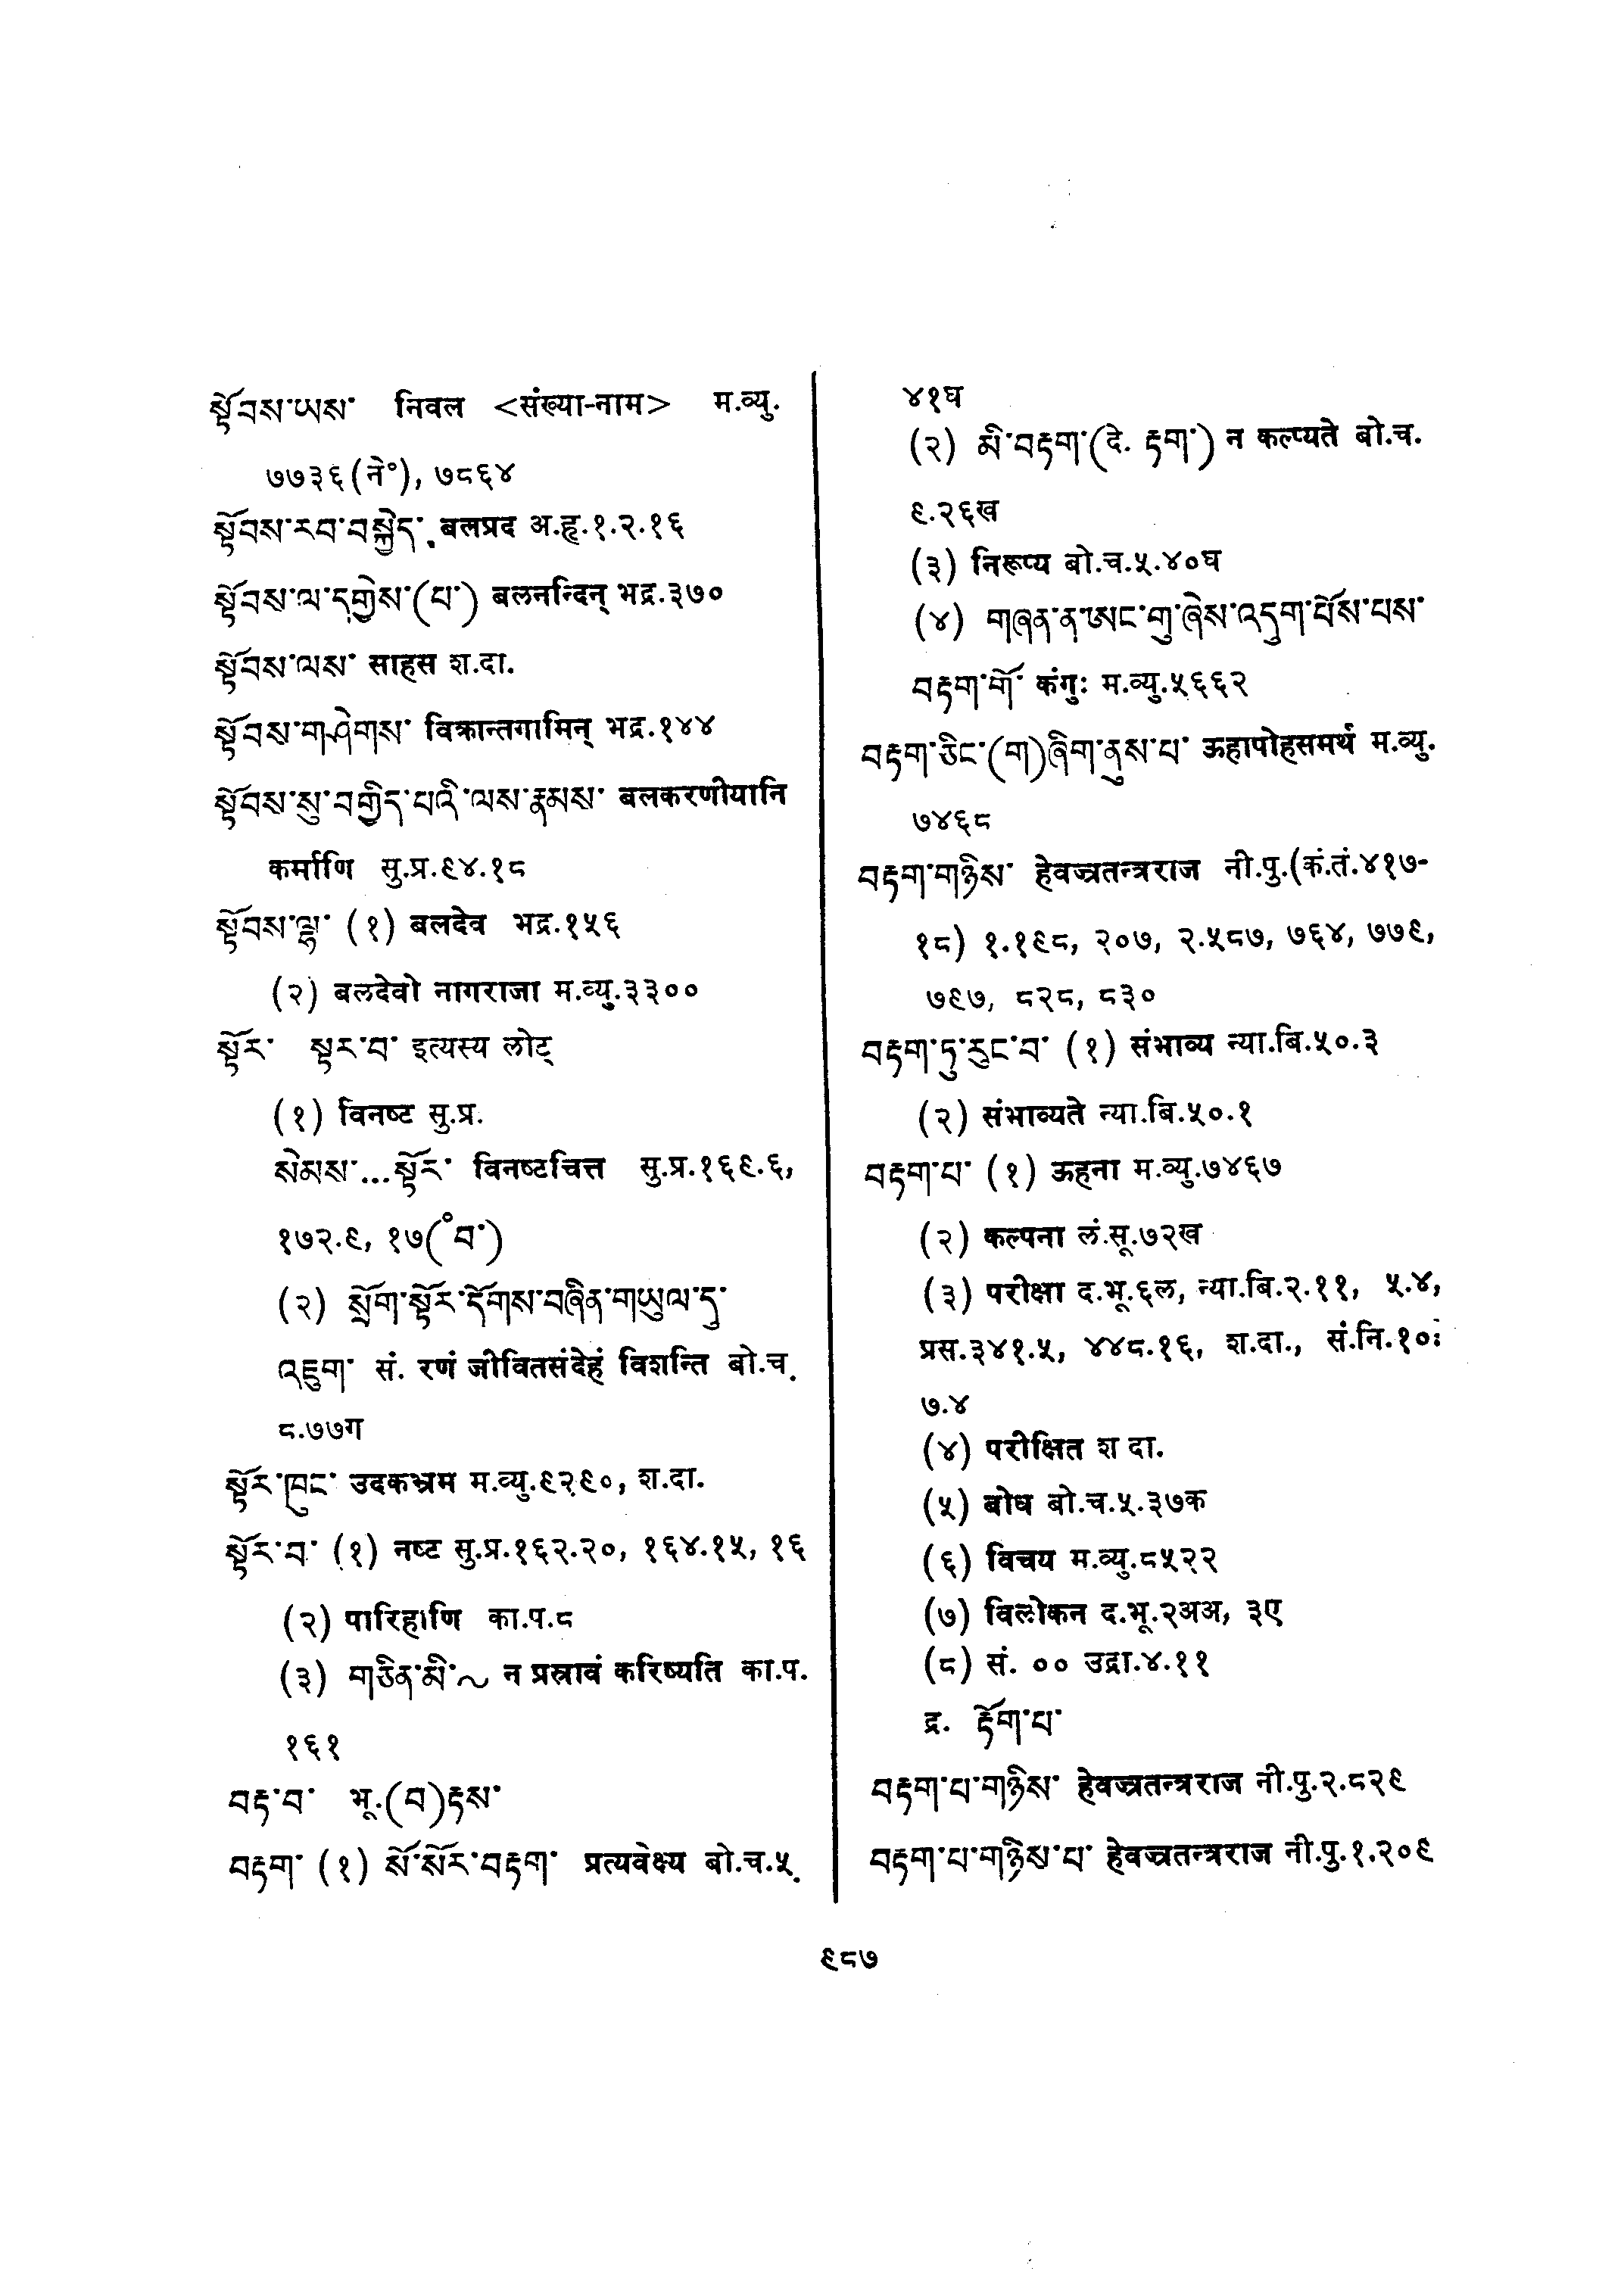 སྟོབས་ཡས་ निवल <संख्या-नाम> म.व्यु.
७७३६(ने°), ७८६४
སྟོབས་རབ་བསྐྱེད་ बलप्रद अ.हृ.१.२.१६
སྟོབས་ལ་དགྱེས་(པ་) बलनन्दिन् भद्र.३७०
སྟོབས་ལས་ साहस श.दा.
སྟོབས་གཤེགས་ विक्रान्तगामिन् भद्र.१४४
སྟོབས་སུ་བགྱིད་པའི་ལས་རྣམས་ बलकरणीयानि
कर्माणि सु.प्र.९४.१८
སྟོབས་ལྷ་ (१) बलदेव भद्र.१५६
(२) बलदेवो नागराजा म.व्यु.३३००
སྟོར་ སྟར་བ་ इत्यस्य लोट्
(१) विनष्ट सु.प्र.
སེམས་...སྟོར་ विनष्टचित्त सु.प्र.१६९.६,
१७२.९, १७(°བ་)
(२) སྲོག་སྟོར་དོགས་བཞིན་གཡུལ་དུ་
འཇུག་ सं. रणं जीवितसंदेहं विशन्ति बो.च.
८.७७ग
སྟོར་ཁུང་ उदकभ्रम म.व्यु.९२९०, श.दा.
སྟོར་བ་ (१) नष्ट सु.प्र.१६२.२०, १६४.१५, १६
(२) पारिहाणि का.प.८
(३) གཅིན་མི་~ न प्रस्रावं करिष्यति का.प.
१६१
བརྟ་བ་ भू.(བ)རྟས་
བརྟག་ (१) སོ་སོར་བརྟག་ प्रत्यवेक्ष्य बो.च.५.
४१घ
(२) མི་བརྟག་(दे. རྟག་) न कल्प्यते बो.च.
९.२६ख
(३) निरूप्य बो.च.५.४०घ
(४) གཞན་ན་ཨང་གུ་ཞེས་འདུག་པོས་པས་
བརྟག་གོ་ कंगुः म.व्यु.५६६२
བརྟག་ཅིང་(ག)ཞིག་ནུས་པ་ ऊहापोहसमर्थ म.व्यु.
७४६८
བརྟག་གཉིས་ हेवज्रतन्त्रराज नी.पु.(कं.तं.४१७-
१८) १.१९८, २०७, २.५८७, ७६४, ७७९,
७९७, ८२८, ८३०
བརྟག་ཏུ་རུང་བ་ (१) संभाव्य न्या.बि.५०.३
(२) संभाव्यते न्या.बि.५०.१
བརྟག་པ་ (१) ऊहना म.व्यु.७४६७
(२) कल्पना लं.सू.७२ख
(३) परीक्षा द.भू.६ल, न्या.बि.२.११, ५.४,
प्रस.३४१.५, ४४८.१६, श.दा., सं.नि.१०:
७.४
(४) परीक्षित श दा.
(५) बोध बो.च.५.३७क
(६) विचय म.व्यु.८५२२
(७) विलोकन द.भू.२अअ, ३ए
(८) सं. ०० उद्रा.४.११
द्र. རྟོག་པ་
བརྟག་པ་གཉིས་ हेवज्रतन्त्रराज नी.पु.२.८२९
བརྟག་པ་གཉིས་པ་ हेवज्रतन्त्रराज नी.पु.१.२०९
९८७